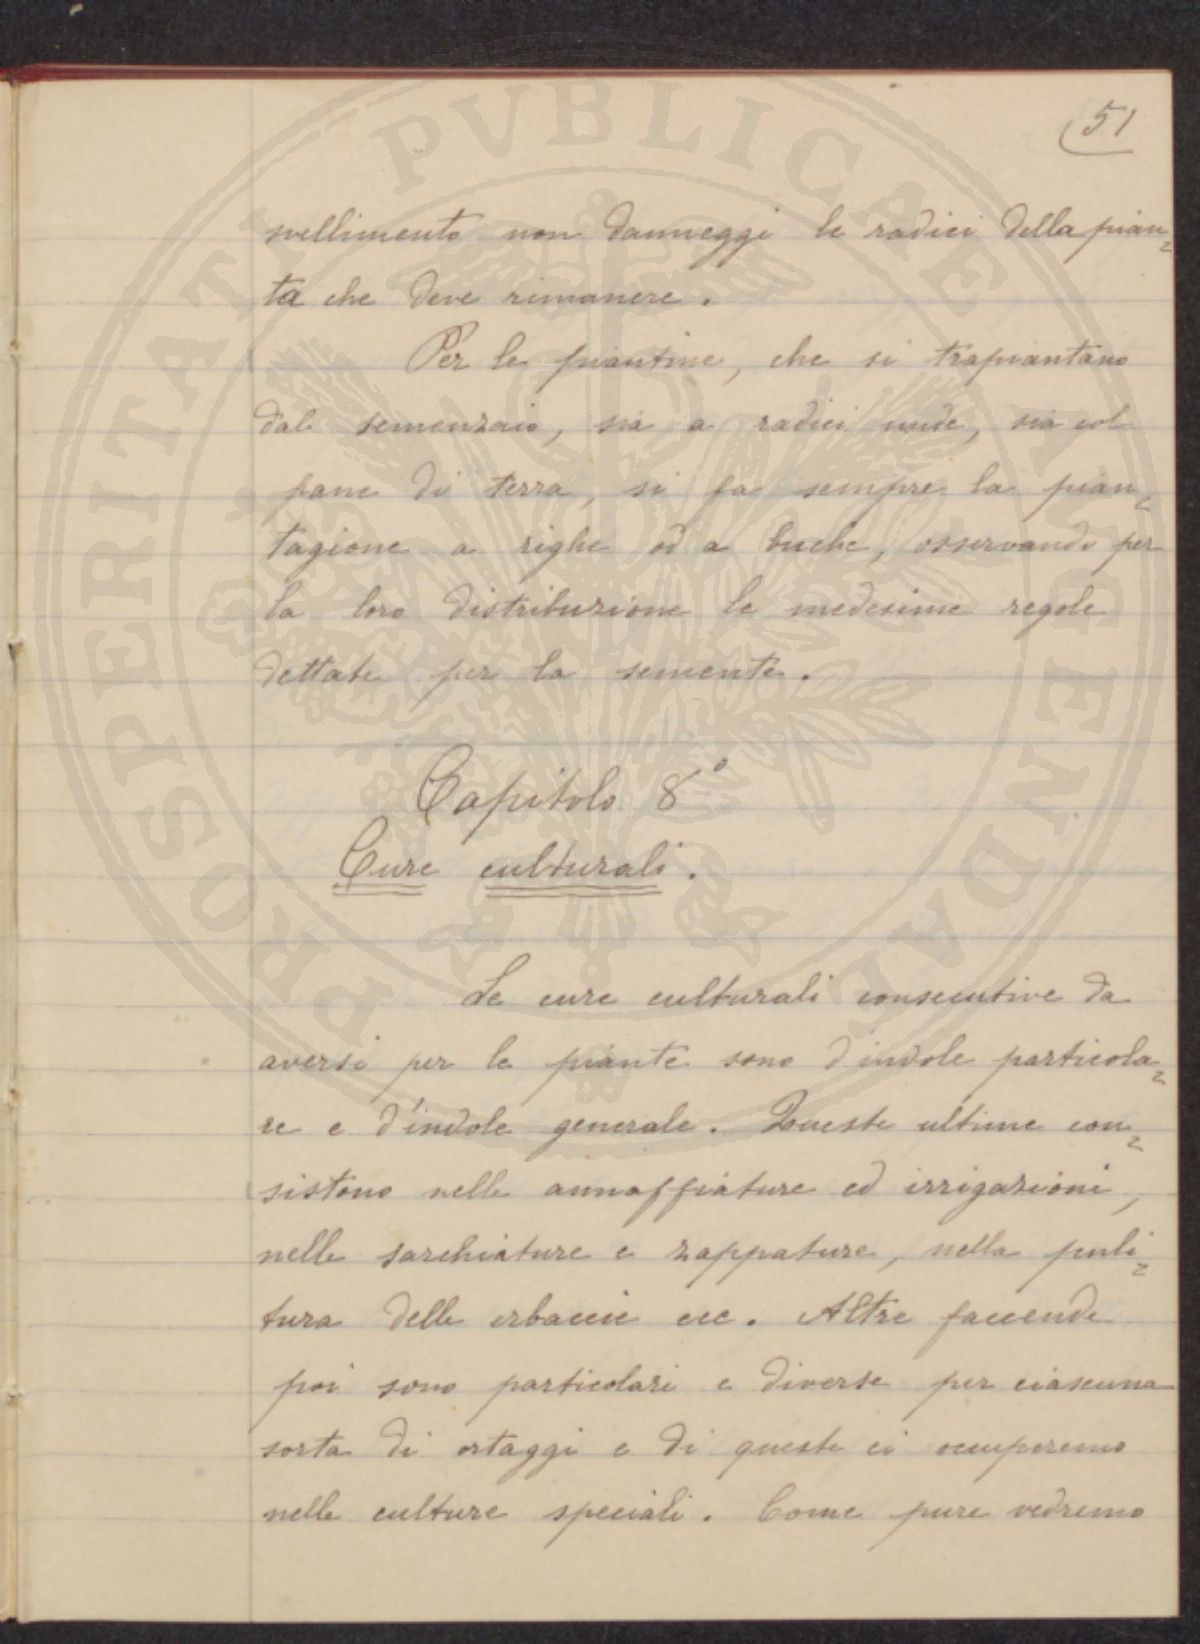 51
svellimento non danneggi le radici della pian=
ta che deve rimanere.
Per le piantine, che si trapiantano
dal semenzaio, sia a radici nude, sia col
pane di terra, si fa sempre la pian=
tagione a righe od a buche, osservando per
la loro distribuzione le medesime regole
dettate per la semente.
Capitolo 8°
Cure culturali.
Le cure culturali consecutive da
aversi per le piante sono d'indole particola=
re e d'indole generale. Queste ultime con=
sistono nelle annaffiature ed irrigazioni,
nelle sarchiature e zappature, nella puli=
tura delle erbaccie ecc. Altre faccende
poi sono particolari e diverse per ciascuna
sorta di ortaggi e di queste ci occuperemo
nelle culture speciali. Come pure vedremo
PROSPERITATI PVBLICAE AVGENDAE